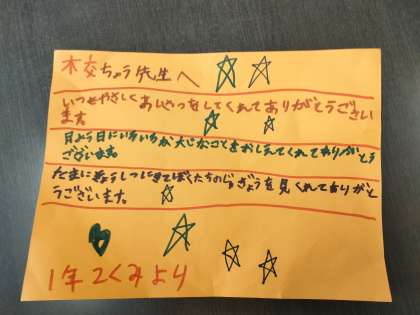 木交ちょう先生へ
いつもやさしくあいさつをしてくれてありがとうござい
ます。
月よう日にいろいろな大じなことをおしえてくれてありがとう
ございます。
たまにきょうしつにきてぼくたちのじゅぎょうを見てくれてありがと
うございます。
1年2くみより